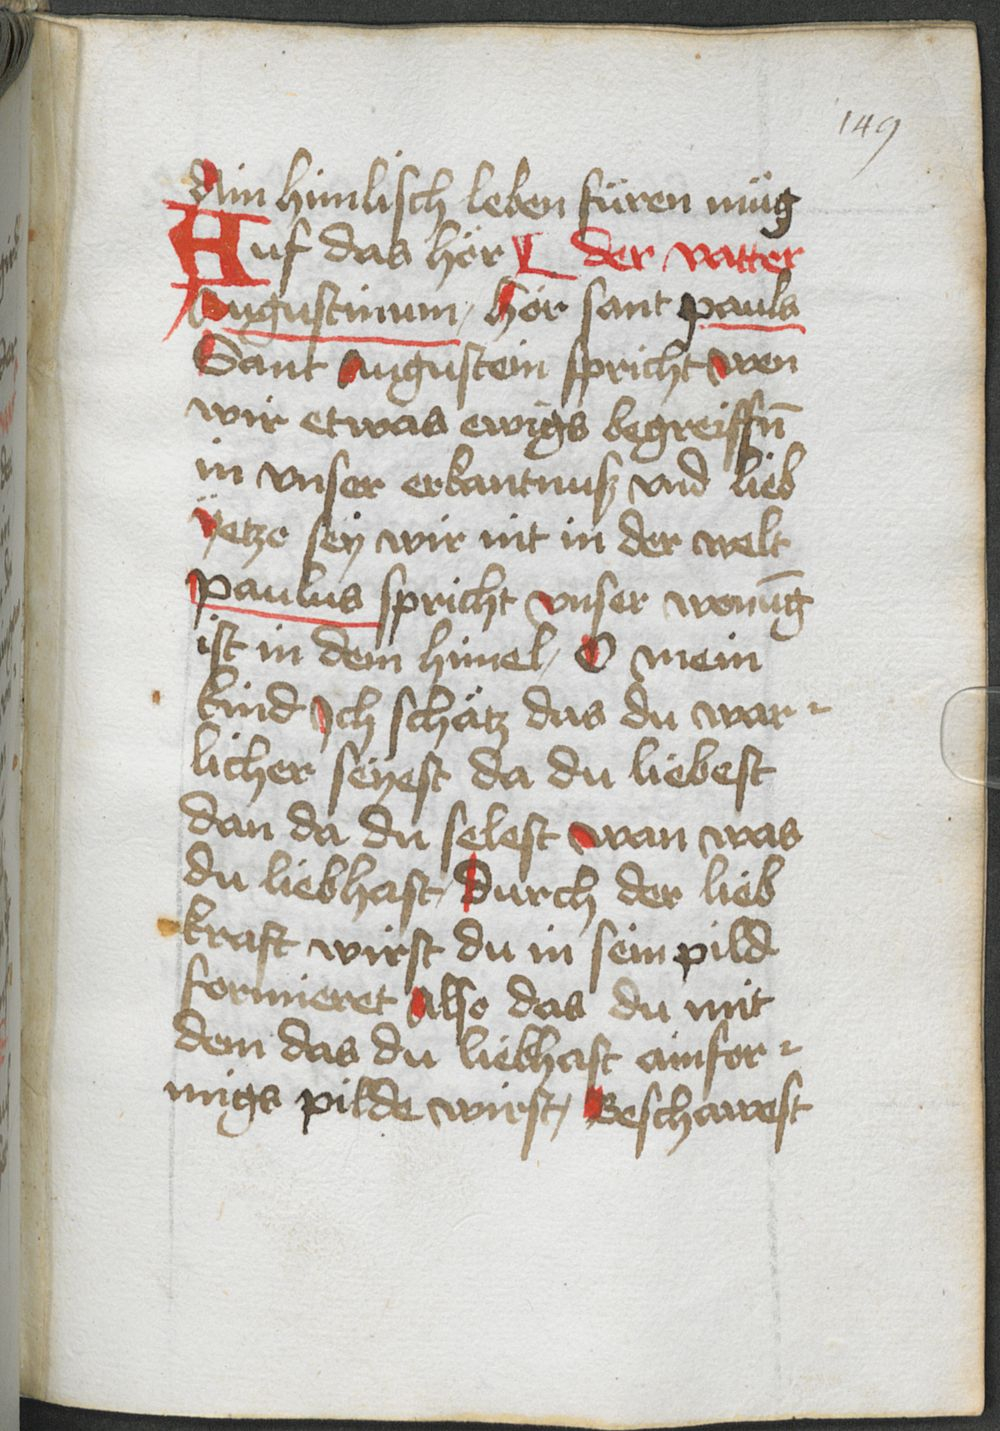 149
Ain himlisch leben füren müg
Auf das hör der vatter
Augustinum / hör sant pauls
Sant Augustein spricht wen
wir etwas ewigs begreiffn̄
in vnser erkantnusz vnd lieb
yetzo sey wir nit in der welt
paulus spricht vnser wonūg
ist in dem himel / O mein
kind Ich schätz das du war-
licher seyest da du liebest
dan da du selest wan was
du liebhast / Durch der lieb
kraft wirst du in sein pild
formieret Also das du mit
dem das du liebhast ainfor-
migs pilde wirst / Beschawest